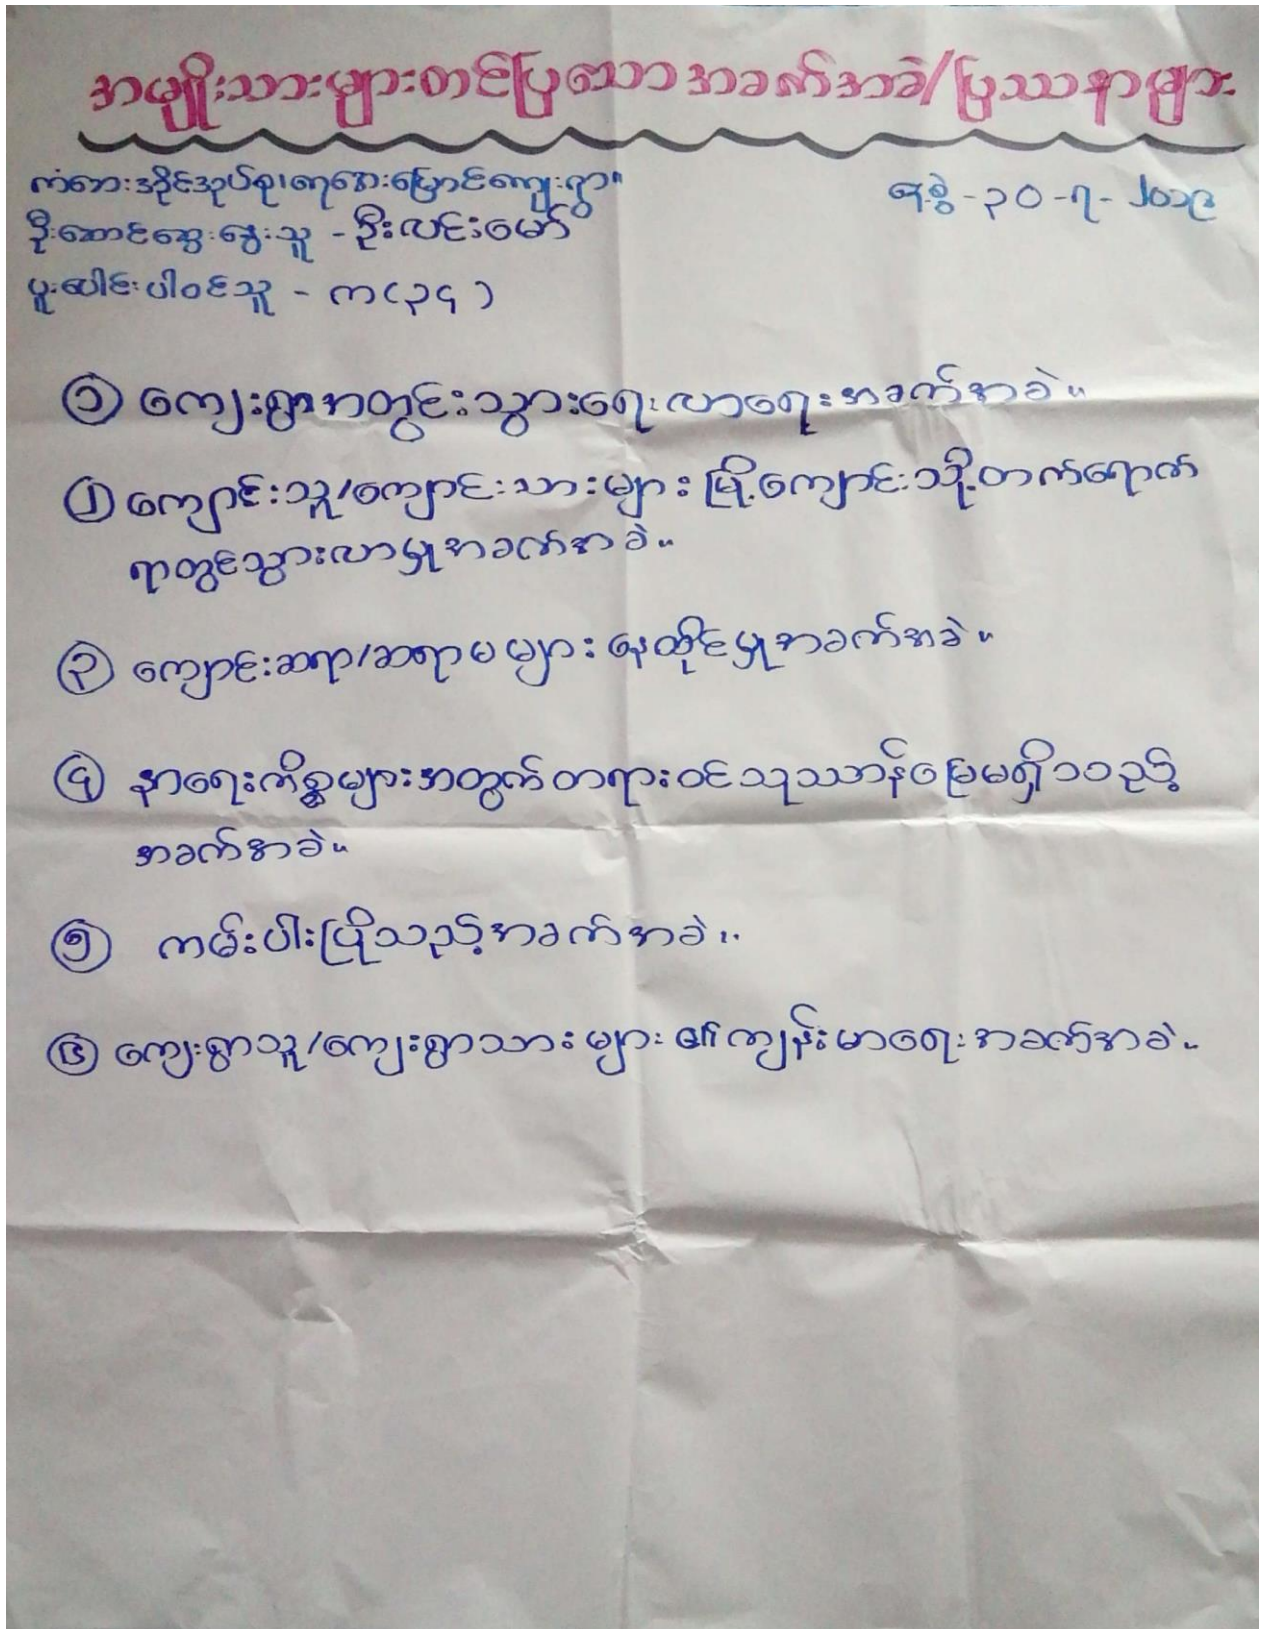 အမျိုးသားများတင်ပြသောအခက်အခဲ/ပြဿနာများ
ကံစားအိုင်အုပ်စု၊ရေအေးမြောင်ကျေးရွာ။
ရက်စွဲ - ၃၀ - ၇ - ၂၀၁၉
ဦးဆောင်ဆွေးနွေးသူ - ဦးလင်းမော်
ပူးပေါင်းပါဝင်သူ - ကျား (၃၄)
၁ ကျေးရွာအတွင်းသွားရေးလာရေးအခက်အခဲ။
၂ ကျောင်းသူ/ကျောင်းသားများ မြို့ကျောင်းသို့တက်ရောက်
ရာတွင်သွားလာမှုအခက်အခဲ။
၃ ကျောင်းဆရာ/ဆရာမများ နေထိုင်မှုအခက်အခဲ။
၄ နာရေးကိစ္စများအတွက်တရားဝင်သုဿာန်မြေမရှိသည့်
အခက်အခဲ။
၅ ကမ်းပါးပြိုသည့်အခက်အခဲ။
၆ ကျေးရွာသူ/ကျေးရွာသားများ၏ကျန်းမာရေးအခက်အခဲ။